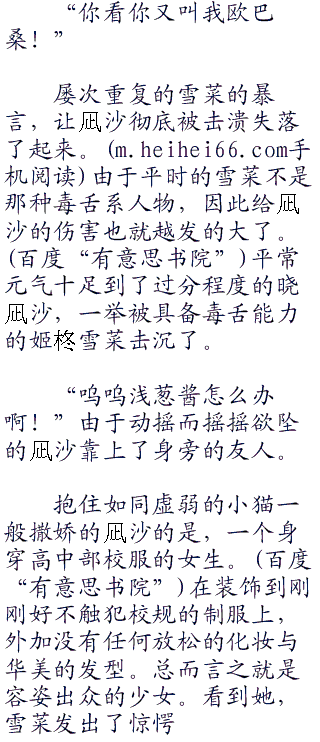 “你看你又叫我欧巴
桑！”
屡次重复的雪菜的暴
言，让凪沙彻底被击溃失落
了起来。(m.heihei66.com手
机阅读)由于平时的雪菜不是
那种毒舌系人物，因此给凪
沙的伤害也就越发的大了。
(百度“有意思书院”)平常
元气十足到了过分程度的晓
凪沙，一举被具备毒舌能力
的姬柊雪菜击沉了。
“呜呜浅葱酱怎么办
啊！”由于动摇而摇摇欲坠
的凪沙靠上了身旁的友人。
抱住如同虚弱的小猫一
般撒娇的凪沙的是，一个身
穿高中部校服的女生。(百度
“有意思书院”)在装饰到刚
刚好不触犯校规的制服上，
外加没有任何放松的化妆与
华美的发型。总而言之就是
容姿出众的少女。看到她，
雪菜发出了惊愕